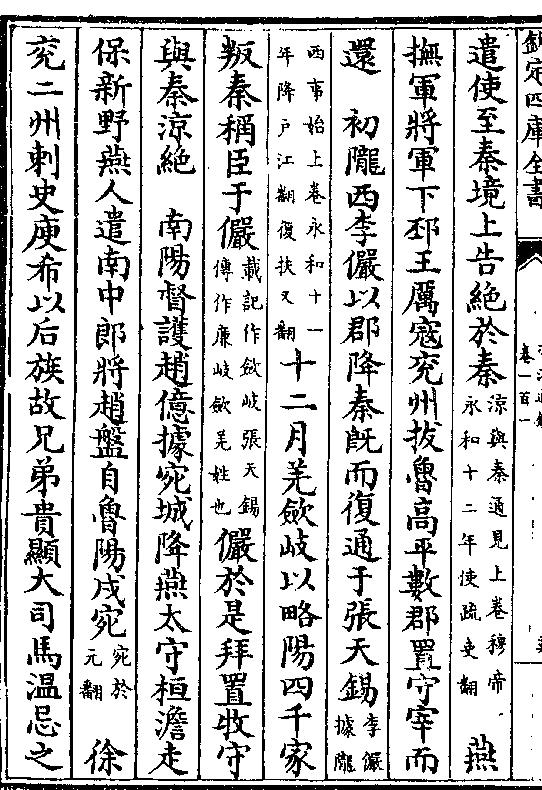 欽定四庫全書
卷一百一
遣使至秦境上告絶於秦涼與秦通見上卷穆帝永和十二年使疏吏翻 燕
撫軍將軍下邳王厲寇兖州拔魯高平數郡置守宰而
還 初隴西李儼以郡降秦旣而復通于張天錫李儼據隴
西事始上卷永和十一年降户江翻復扶又翻十二月羌歛岐以略陽四千家
叛秦稱臣于儼載記作歛岐張天錫傳作廉岐歛羌姓也儼於是拜置牧守
與秦涼絶 南陽督護趙億據宛城降燕太守桓澹走
保新野燕人遣南中郎將趙盤自魯陽戍宛宛於元翻 徐
兖二州刺史庾希以后族故兄弟貴顯大司馬温忌之